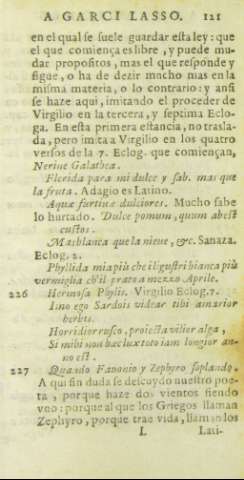 A GARCI LASSO. 121
en el qual se suele guardar esta ley: que
el que comiença es libre, y puede mu-
dar propositos, mas el que responde y
sigue, o ha de dezir mucho mas en la
misma materia, o lo contrario: y ansi
se haze aqui, imitando el proceder de
Virgilio en la tercera, y septima Eclo-
ga. En esta primera estancia, no trasla-
da, pero imita a Virgilio en los quatro
versos de la 7. Eclog. que comiençan,
Nerine Galathea.
Flerida para mi dulce y sab. mas que
la fruta. Adagio es Latino.
Aquæ furtiuæ dulciores. Mucho sabe
lo hurtado. Dulce pomum, quum abest
custos.
Mas blanca que la nieue, &c. Sanaza.
Eclog. 2.
Phyllida mia più che i ligustri bianca più
vermiglia ch'il prato a mezzo Aprile.
226 Hermosa Phylis. Virgilio Eclog. 7.
Imo ego Sardois videar tibi amarior
herbis.
Horridior rusco, proiecta vilior alga,
Si mihi non hæc lux toto iam longior an-
no est.
227 Quando Fauonio y Zephyro soplando.
A qui sin duda se descoydo nuestro poe-
ta, porque haze dos vientos siendo
vno: porque al que los Griegos llaman
Zephyro, porque trae vida, llaman los
L Lati-